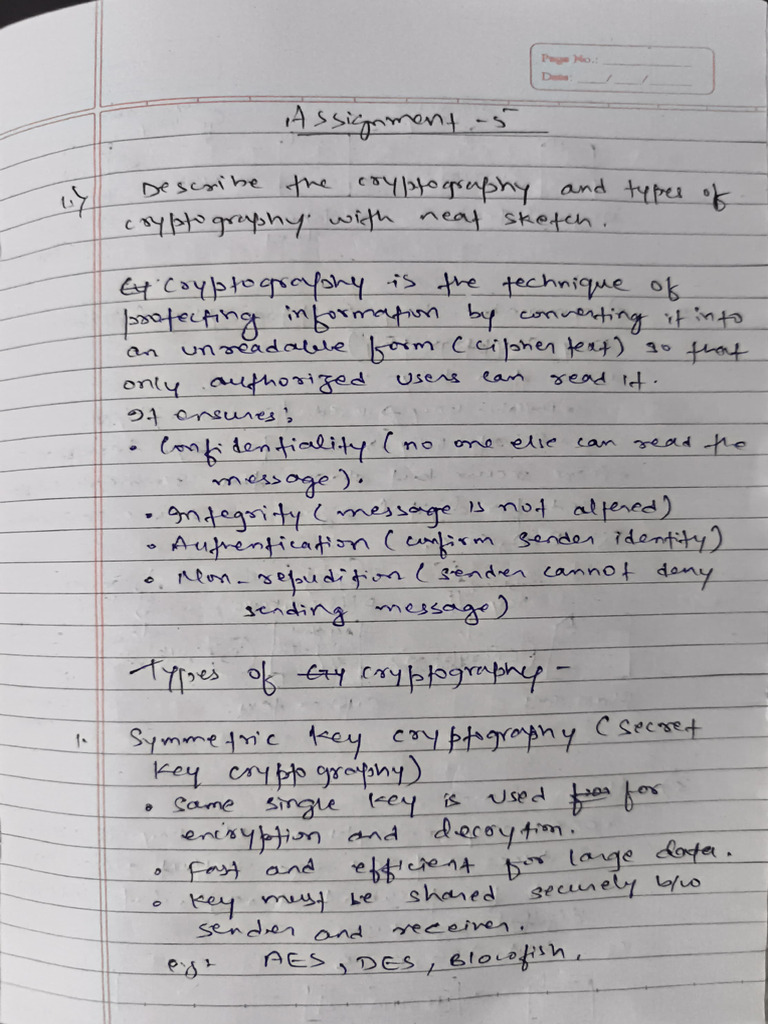 Page No.:
Date: / /
Assignment - 5
1.) Describe the cryptography and types of
cryptography with neat sketch.
Cryptography is the technique of
protecting information by converting it into
an unreadable form (cipher text) so that
only authorized users can read it.
It ensures:
• Confidentiality (no one else can read the
message).
• Integrity (message is not altered)
• Authentication (confirm sender identity)
• Non-repudition (sender cannot deny
sending message)
Types of cryptography -
1. Symmetric key cryptography (secret
key cryptography)
• Same single key is used for
encryption and decrytion.
• Fast and efficient for large data.
• Key must be shared securely b/w
sender and receiver.
e.g: AES, DES, Blowfish,